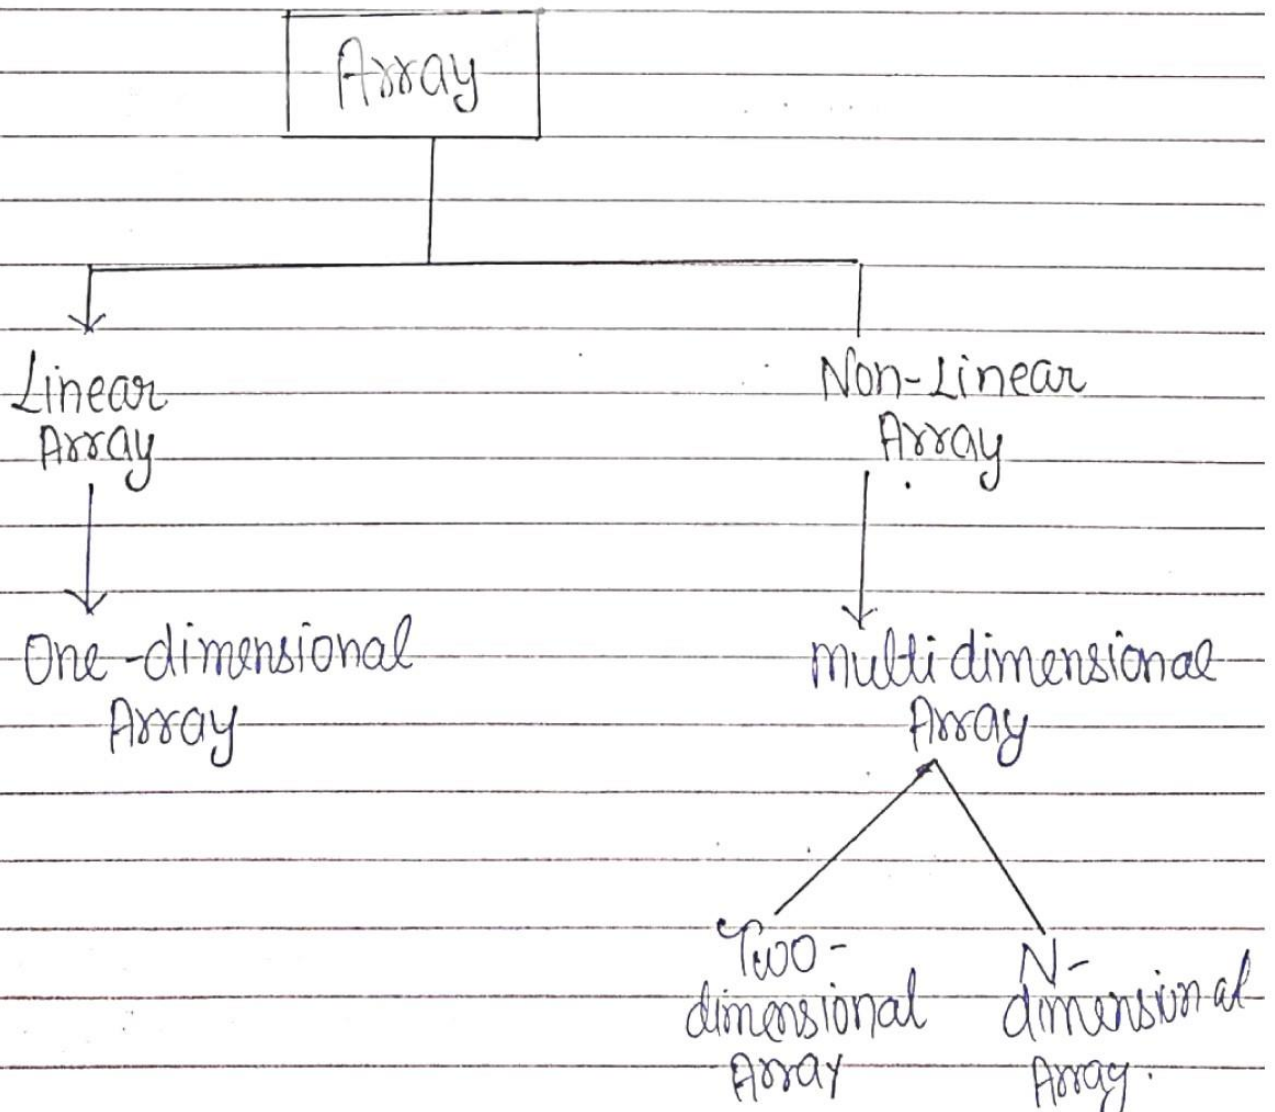 Array
Linear
Array
Non-Linear
Array
One-dimensional
Array
Multidimensional
Array
Two-
dimensional
Array
N-
dimensional
Array.